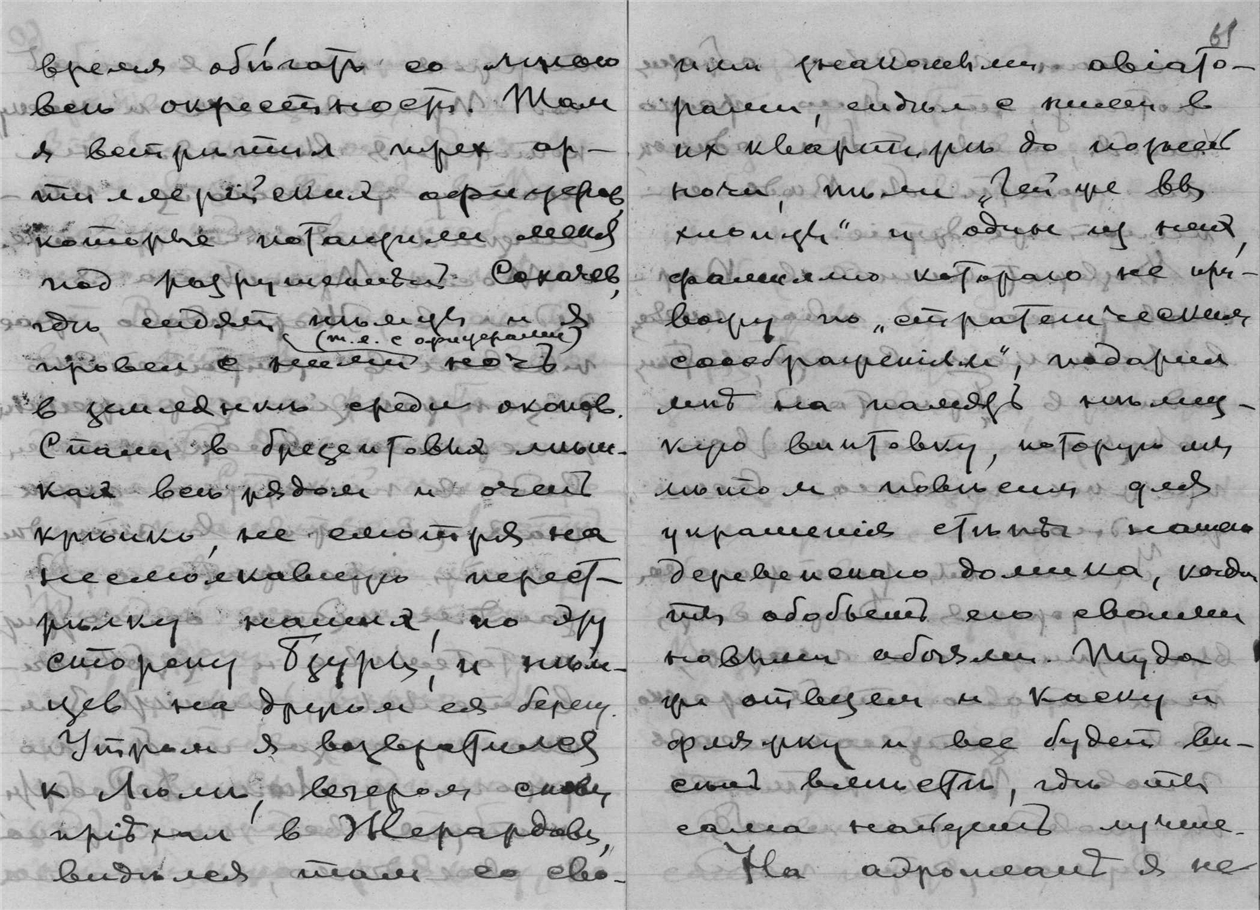 время объѣхать со мною
всю окрестность. Там
я встрѣтил трех ар-
тиллерійских офицеров,
которые потащили меня
под разрушенный Сохачев,
гдѣ сидят нѣмцы и я
(т.е. с офицерами)
провел с ними ночь
в землянкѣ среди окопов.
Спали в брезентовых мѣш-
ках всѣ рядом и очень
крѣпко, не смотря на
несмолкавшую перест-
рѣлку наших, по эту
сторону Бзуры, и нѣм-
цев на другом ея берегу.
Утром я возвратился
к Люли, вечером снова
пріѣхал в Жерардов,
видѣлся там со сво-
61
ими знакомыми авіато-
рами, сидѣл с ними в
их квартирѣ до поздней
ночи, пили „Гей ще вы
хлопцы“ и один из них,
фамилію котораго не при-
вожу по „стратегическим
соображеніям“, подарил
мнѣ на память нѣмец-
кую винтовку, которую мы
потом повѣсим для
украшенія стѣны нашего
деревенскаго домика, когда
ты обобьешь его своими
новыми обоями. Туда
же отвезем и каску и
фляжку и все будет ви-
сѣть вмѣстѣ, гдѣ ты
сама найдешь лучше.
На аэропланѣ я не